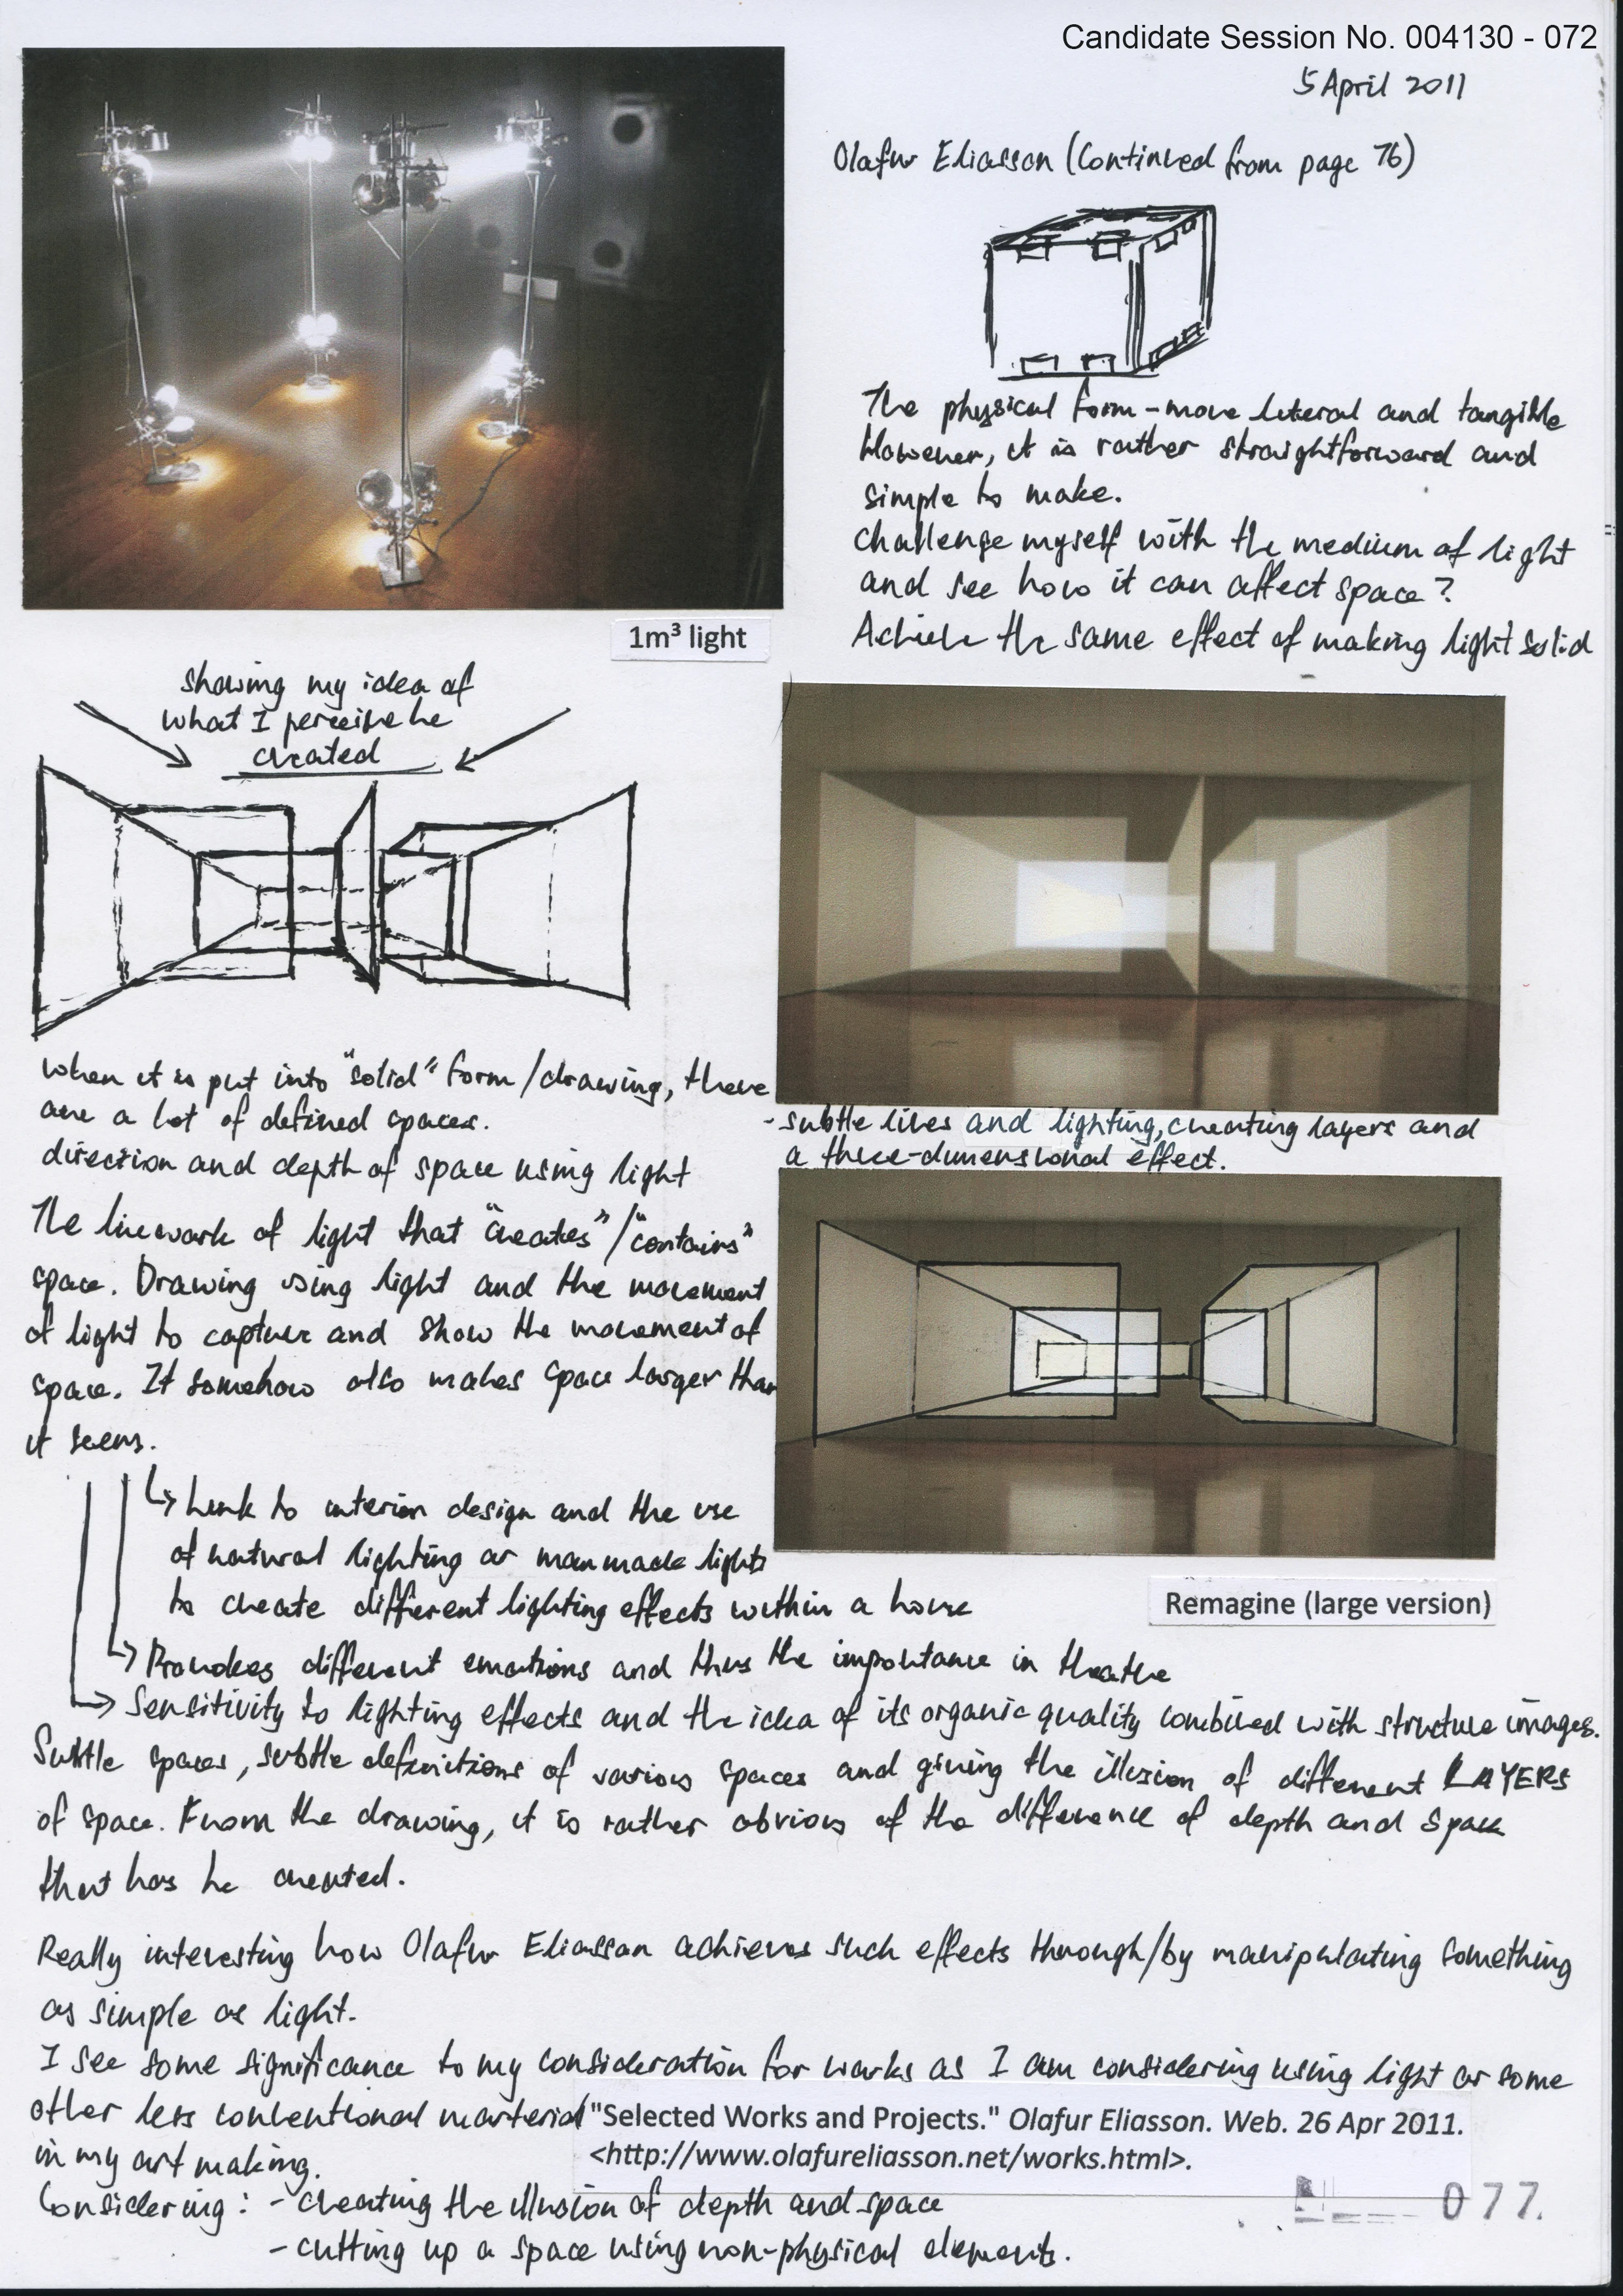 Candidate Session No. 004130 - 072
5 April 2011
Olafur Eliasson (Continued from page 76)
The physical form - more literal and tangible
However, it is rather straightforward and
simple to make.
Challenge myself with the medium of light
and see how it can affect space?
Achieve the same effect of making light solid
1m³ light
showing my idea of
what I perceive he
created
when it is put into "solid" form/drawing, there
are a lot of defined spaces.
direction and depth of space using light
The linework of light that "creates"/"contains"
space. Drawing using light and the movement
of light to capture and show the movement of
space. It somehow also makes space larger than
it seems.
- subtle lines and lighting, creating layers and
a three-dimensional effect.
Remagine (large version)
Link to interior design and the use
of natural lighting or manmade lights
to create different lighting effects within a house
Provokes different emotions and thus the importance in theatre
Sensitivity to lighting effects and the idea of its organic quality combined with structure images.
Subtle spaces, subtle definitions of various spaces and giving the illusion of different LAYERS
of space. From the drawing, it is rather obvious of the difference of depth and space
that has he created.
Really interesting how Olafur Eliasson achieves such effects through/by manipulating something
as simple as light.
I see some significance to my consideration for works as I am considering using light or some
other less conventional material
in my art making.
"Selected Works and Projects." Olafur Eliasson. Web. 26 Apr 2011.
<http://www.olafureliasson.net/works.html>.
Considering: - creating the illusion of depth and space
- cutting up a space using non-physical elements.
077.